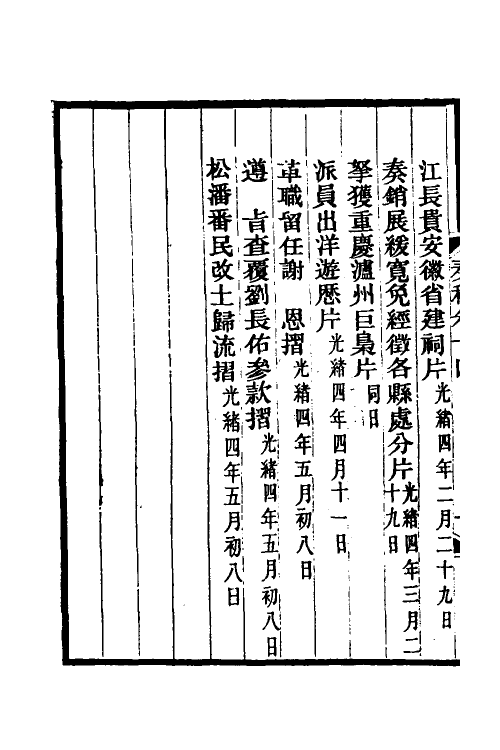 江長貴安徽省建祠片光緒四年二月二十九日
奏銷展緩寬免經徵各縣處分片光緒四年三月二十九日
拏獲重慶瀘州巨梟片同日
派員出洋遊歷片光緒四年四月十一日
革職留任謝 恩摺光緒四年五月初八日
遵 旨查覆劉長佑參款摺光緒四年五月初八日
松潘番民改土歸流摺光緒四年五月初八日